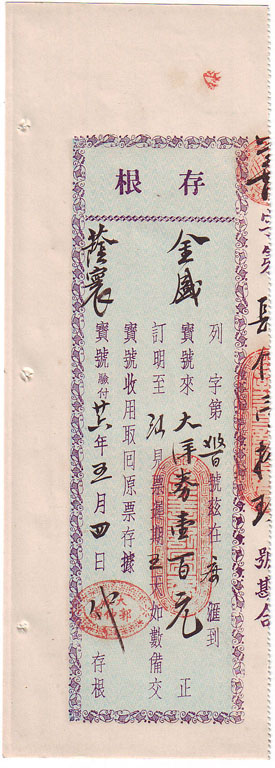 存根
列字第 號茲在 滙到
金盛
寶號來大洋券壹百元正
訂明至 見票遲期五天如數備交
寶號收用取回原票存據
蔭襄
寶號驗付廿六年五月四日 存根
字第 號甚合